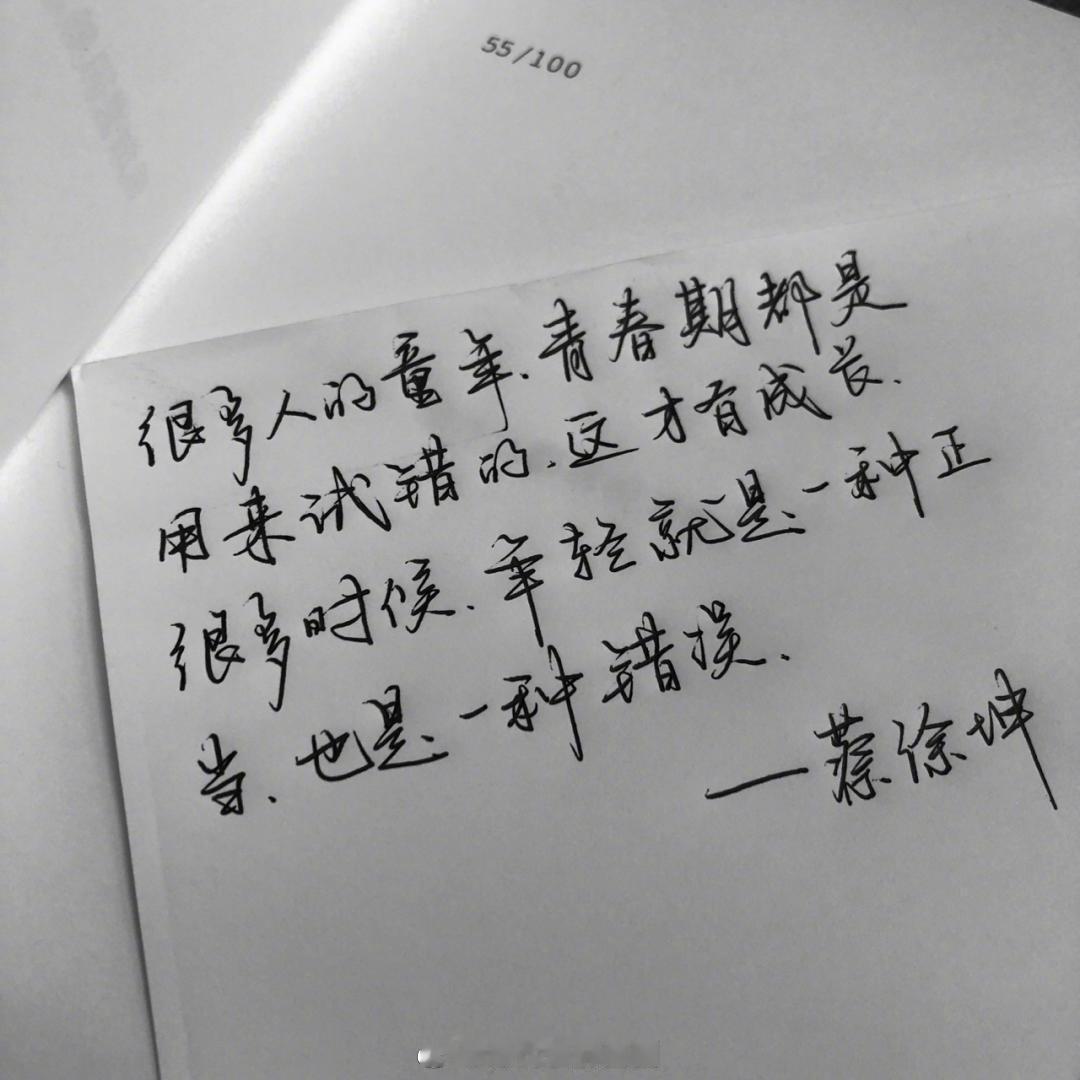 55/100
很多人的童年.青春期都是
用来试错的.这才有成长.
很多时候.年轻就是一种正
当.也是一种错误.
—蔡徐坤